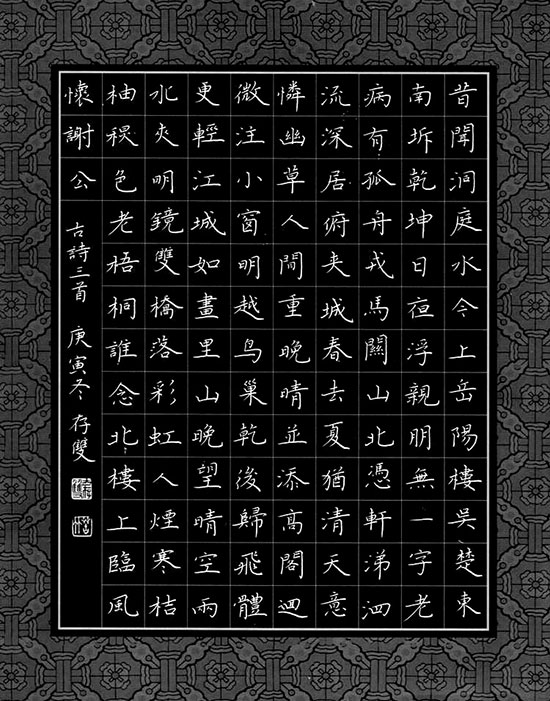 昔聞洞庭水今上岳陽樓吳楚東
南坼乾坤日夜浮親朋無一字老
病有孤舟戎馬關山北憑軒涕泗
流深居俯夾城春去夏猶清天意
憐幽草人間重晚晴並添高閣迥
微注小窗明越鸟巢乾後歸飛體
更輕江城如畫里山晚望晴空雨
水夾明鏡雙橋落彩虹人煙寒桔
柚秋色老梧桐誰念北樓上臨風
懷謝公
古詩三首 庚寅冬 存雙